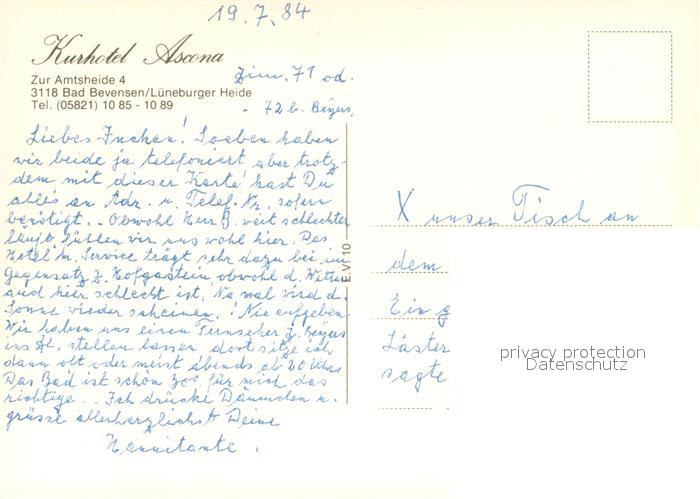 19.7.84
Kurhotel Ascona
Zur Amtsheide 4
3118 Bad Bevensen/Lüneburger Heide
Tel. (05821) 10 85 - 10 89
Zim. 71 od.
72 b. Beyers,
Liebes ! Soeben haben
wir beide ja telefoniert, aber trotz-
dem mit dieser Karte hast Du
alles an Adr. u. Telef. Nr. sofern
benötigt. - Obwohl Herr B. weit schlechter
läuft, fühlen wir uns wohl hier. Das
Hotel m. Service trägt sehr dazu bei, im
Gegensatz z. Hofgastein obwohl d. Wetter
auch hier schlecht ist. Na mal wird d.
Sonne wieder scheinen. ! Nie aufgeben.
Wir haben uns einen Fernseher z. Beyers
ins stellen lassen, dort sitze ich
dann oft oder meist abends ab 20 Uhr.
Das Bad ist schön für mich das
richtige.. Ich drücke Däumchen u.
grüsse allerherzlichst Deine
Hannitante.
E.V. 10
X unser Tisch an
dem
Ein g
Läster
sagte
privacy protection
Datenschutz